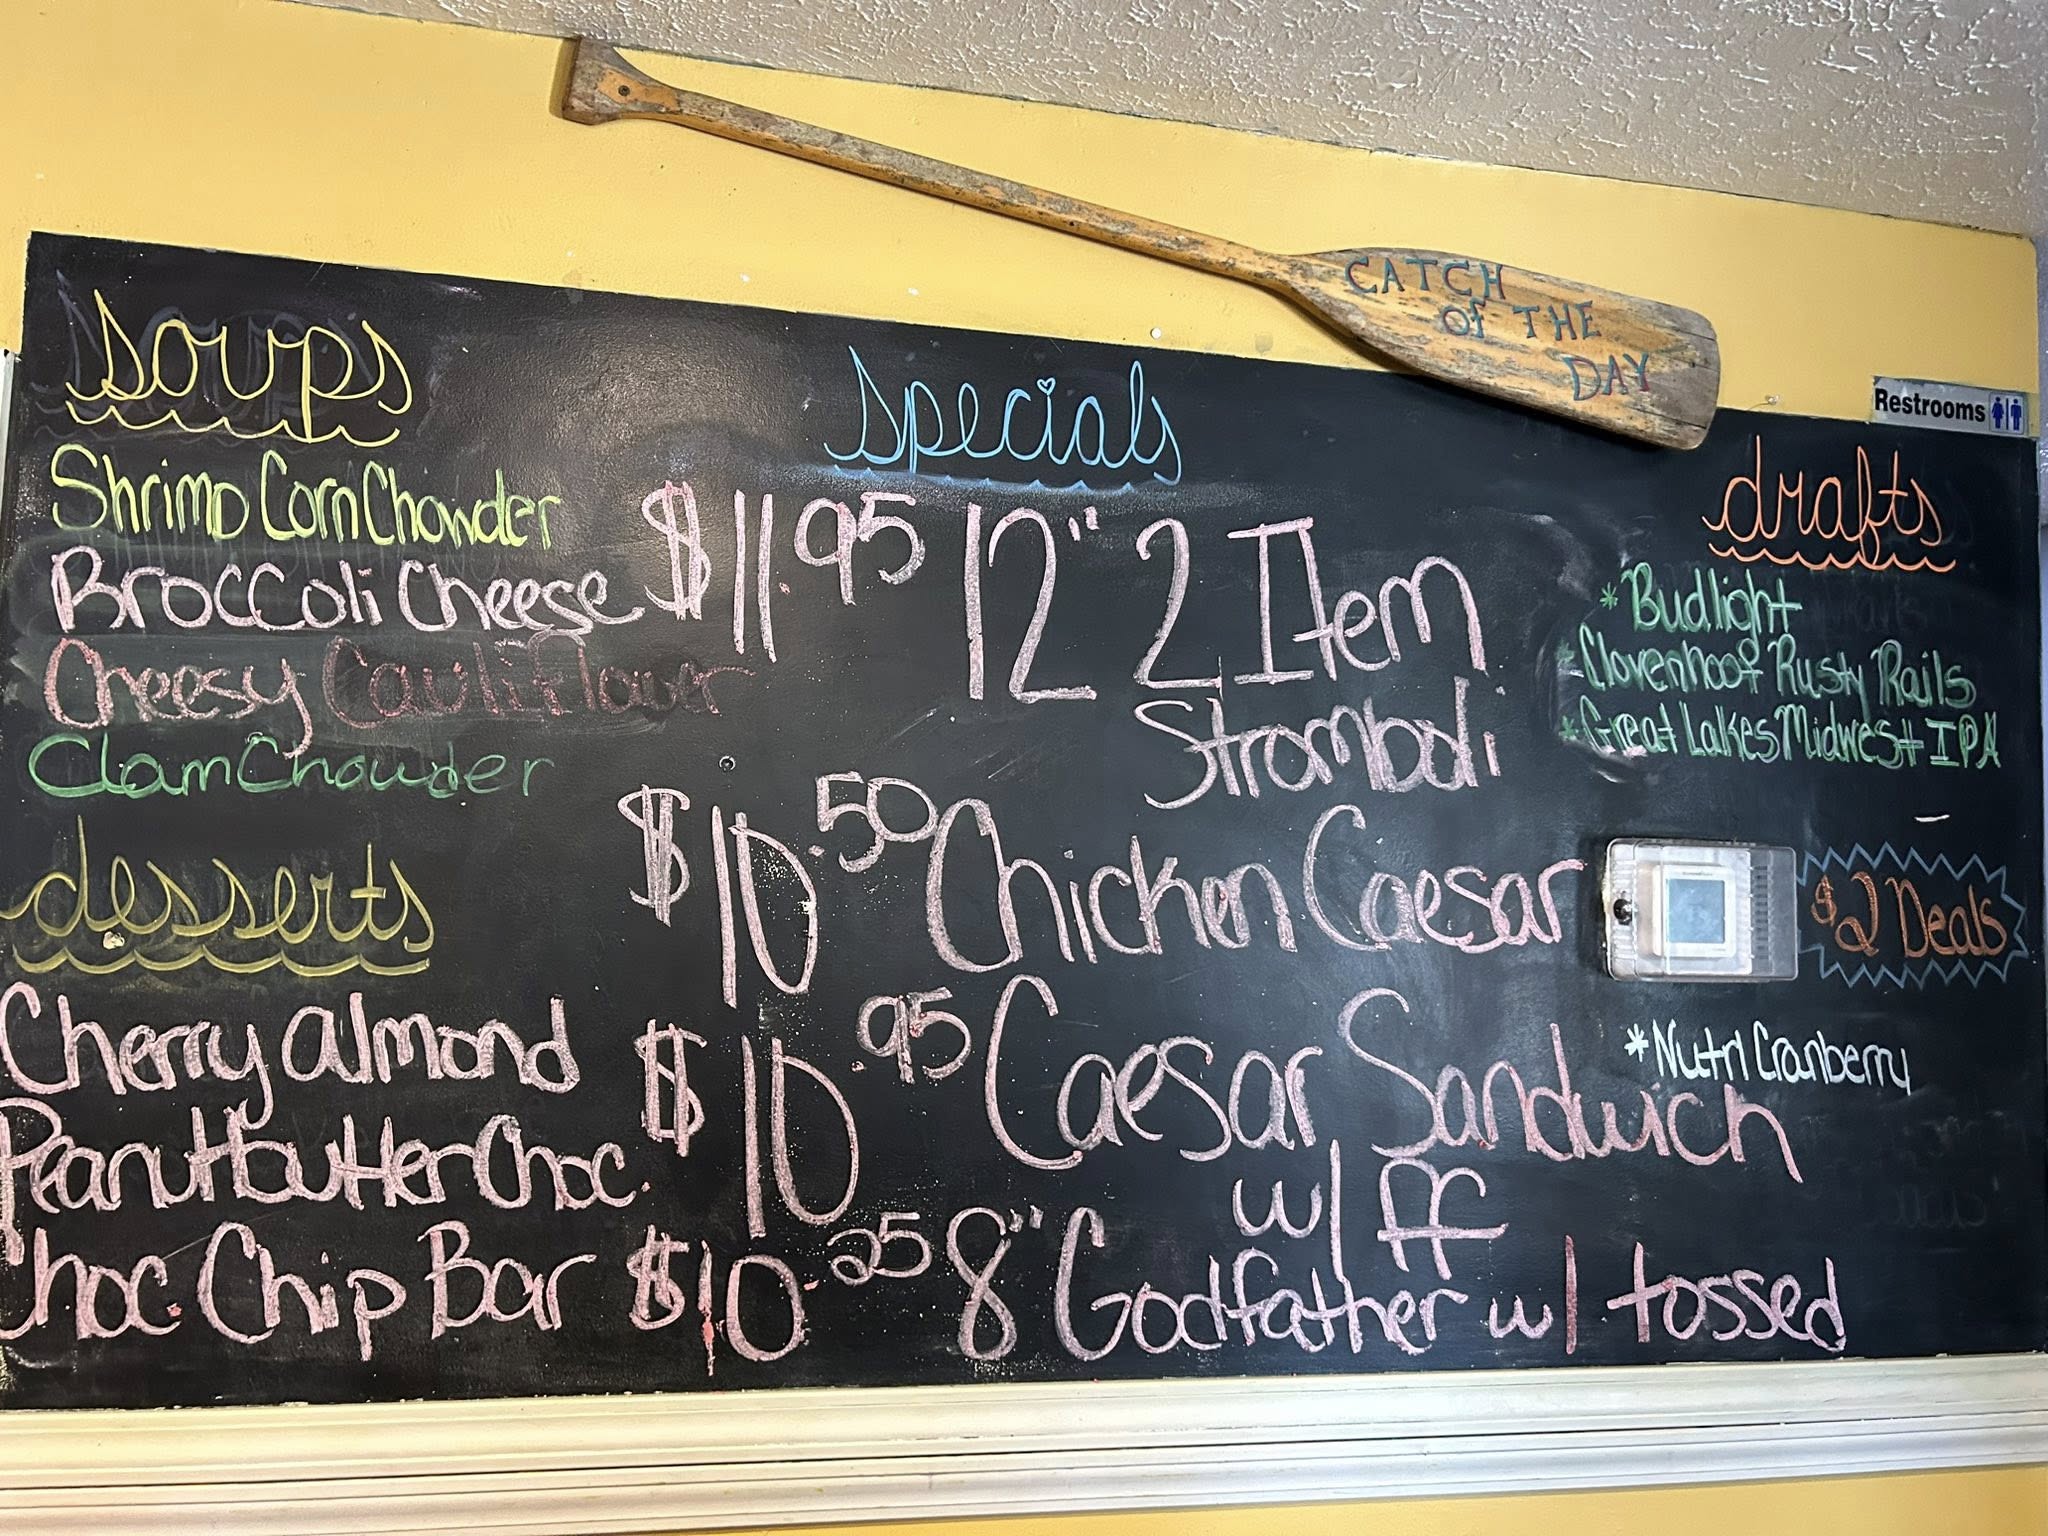 CATCH
of THE
DAY
Restrooms
soups
Shrimp Corn Chowder
Broccoli Cheese
Cheesy Cauliflower
Clam Chowder
desserts
Cherry almond
Peanutbutter Choc.
Choc. Chip Bar
specials
$11.95 12" 2 Item
Stromboli
$10.50 Chicken Caesar
$10.95 Caesar Sandwich
w/ FF
$10.25 8" Godfather w/ tossed
drafts
* Budlight
* Clovenhoof Rusty Rails
* Great Lakes Midwest IPA
$2 Deals
* Nutrl Cranberry